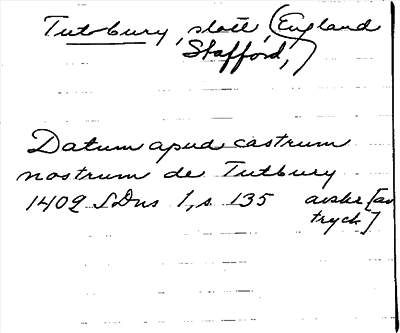 Tutbury, slott, (England
Stafford,)
Datum apud castrum
nostrum de Tutbury
1402 SDns 1, s 135 avskr [av
tryck]